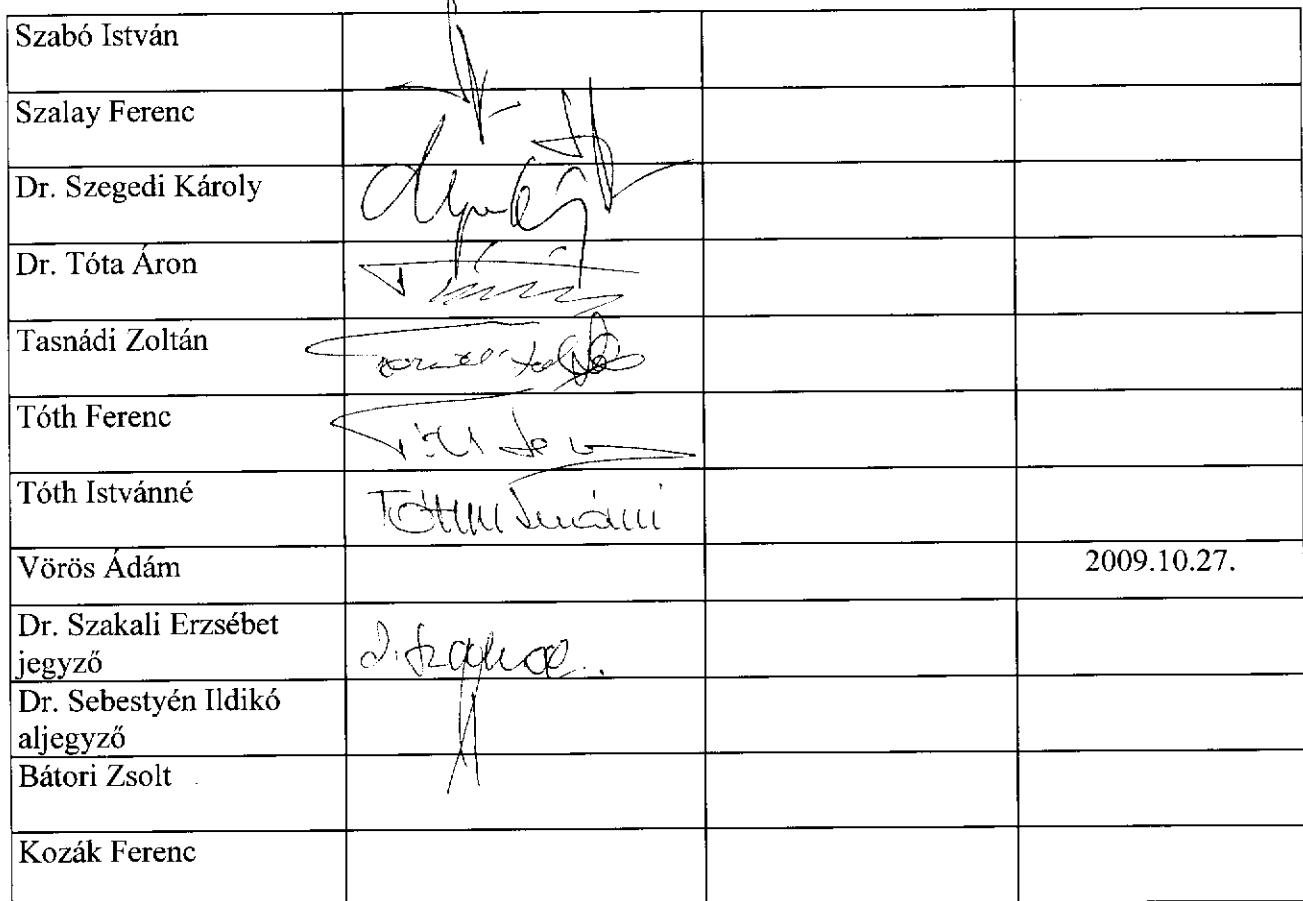 Szabó István
Szalay Ferenc
Dr. Szegedi Károly
Dr. Tóta Áron
Tasnádi Zoltán
Tóth Ferenc
Tóth Istvánné
Vörös Ádám 2009.10.27.
Dr. Szakali Erzsébet
jegyző
Dr. Sebestyén Ildikó
aljegyző
Bátori Zsolt
Kozák Ferenc